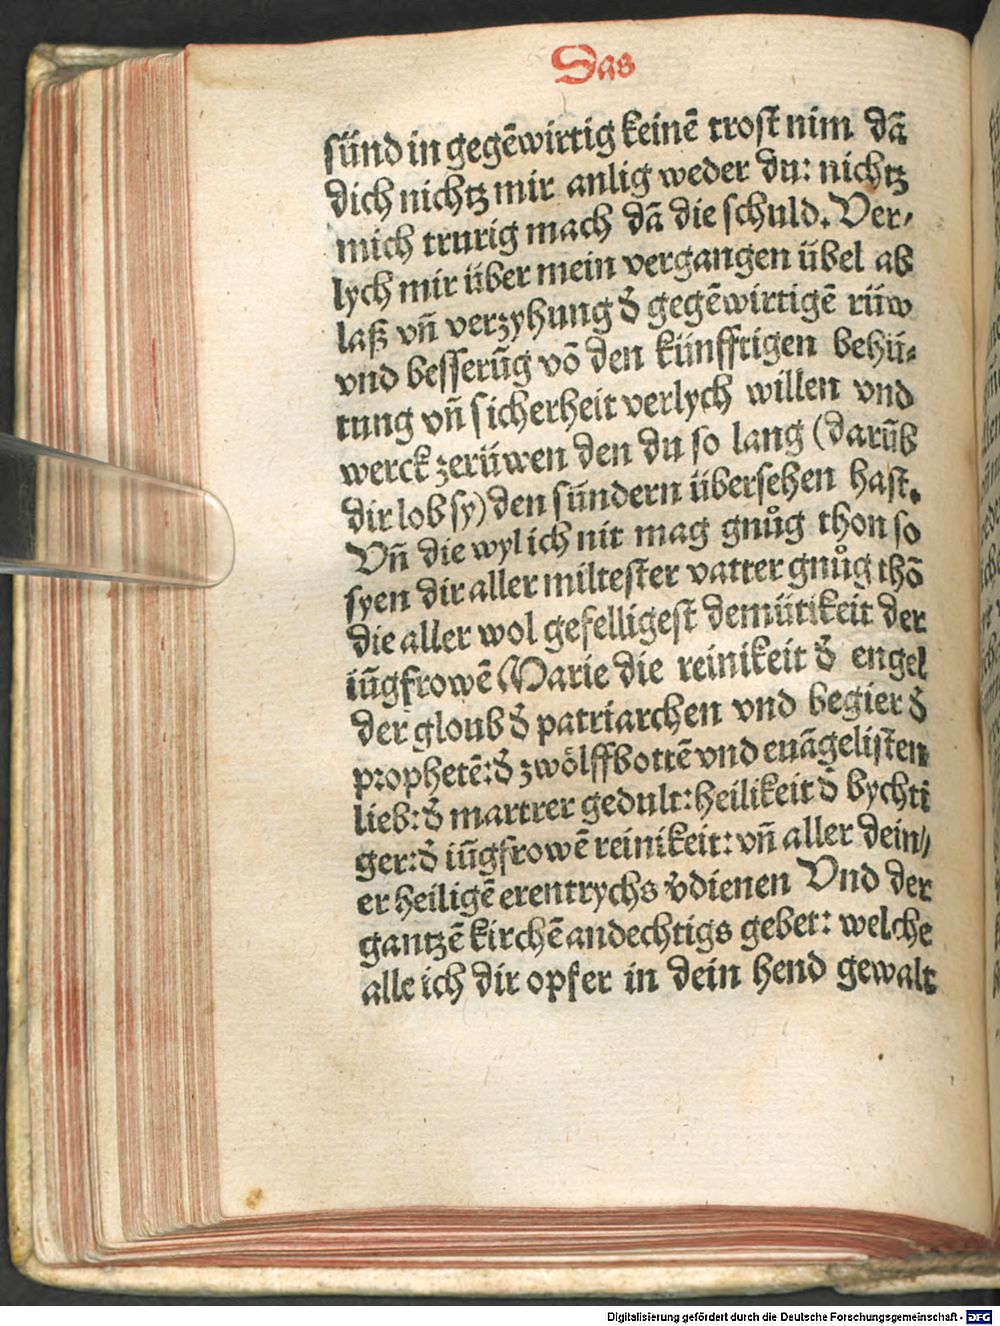 Das
sünd in gegēwirtig keinē trost nim dā
dich nichtz mir anlig weder du: nichtz
mich trurig mach dā die schuld. Ver⸗
lych mir über mein vergangen übel ab
laß vñ verzyhung d̄ gegēwirtigē rüw
vnd besserūg vō den künfftigen behü⸗
tung vñ sicherheit verlych willen vnd
werck zerüwen den du so lang (darūb
dir lob sy) den sündern übersehen hast.
Vñ die wyl ich nit mag gnůg thon so
syen dir aller miltester vatter gnůg thō
die aller wol gefelligest demütikeit der
iūgfrowē Marie die reinikeit d̄ engel
der gloub d̄ patriarchen vnd begier d̄
prophetē: d̄ zwölffbottē vnd euāgelisten
lieb: d̄ martrer gedult: heilikeit d̄ bychti
ger: d̄ iūgfrowē reinikeit: vñ aller dein⸗
er heiligē erentrychs v̄dienen Vnd der
gantzē kirchē andechtigs gebet: welche
alle ich dir opfer in dein hend gewalt
Digitalisierung gefördert durch die Deutsche Forschungsgemeinschaft - DFG